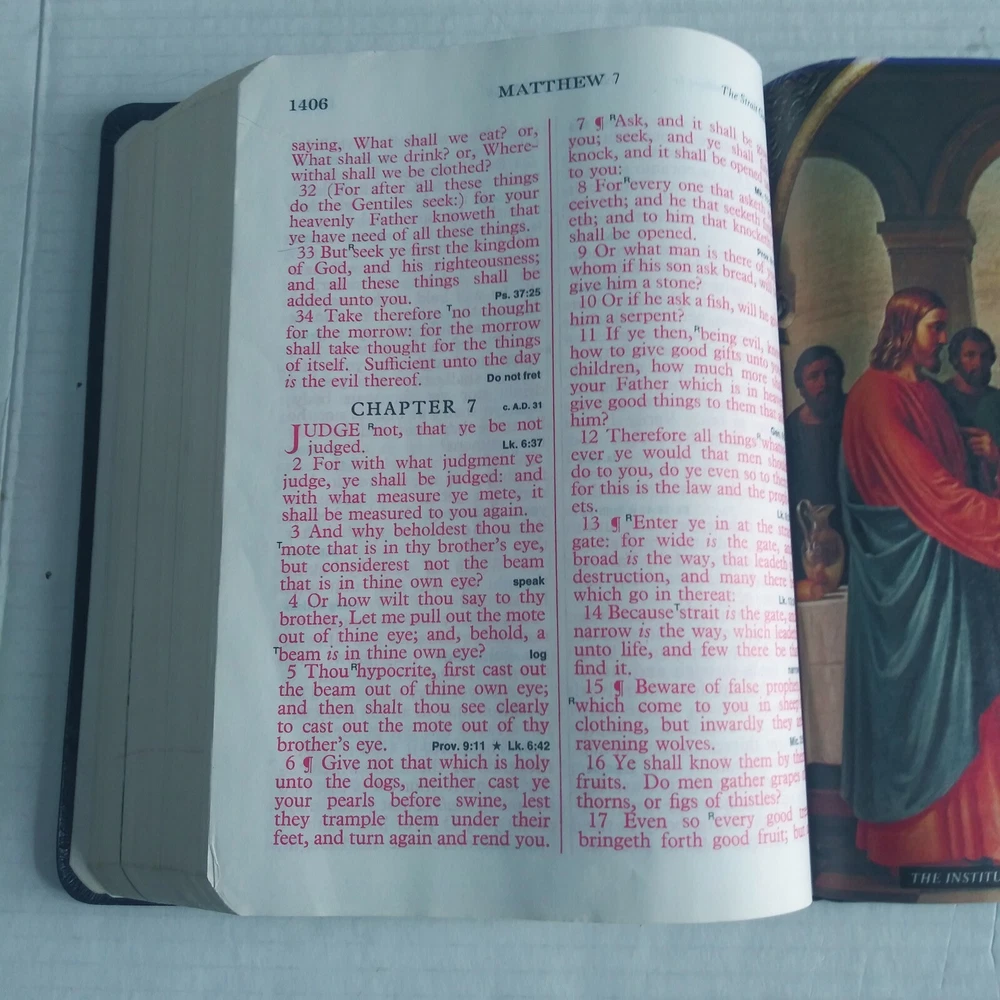 1406
MATTHEW 7
The Strait
saying, What shall we eat? or,
What shall we drink? or, Where-
withal shall we be clothed?
32 (For after all these things
do the Gentiles seek:) for your
heavenly Father knoweth that
ye have need of all these things.
33 But Rseek ye first the kingdom
of God, and his righteousness;
and all these things shall be
added unto you. Ps. 37:25
34 Take therefore Tno thought
for the morrow: for the morrow
shall take thought for the things
of itself. Sufficient unto the day
is the evil thereof. Do not fret
CHAPTER 7 c. A.D. 31
JUDGE Rnot, that ye be not
judged. Lk. 6:37
2 For with what judgment ye
judge, ye shall be judged: and
with what measure ye mete, it
shall be measured to you again.
3 And why beholdest thou the
Tmote that is in thy brother's eye,
but considerest not the beam
that is in thine own eye? speak
4 Or how wilt thou say to thy
brother, Let me pull out the mote
out of thine eye; and, behold, a
Tbeam is in thine own eye? log
5 Thou Rhypocrite, first cast out
the beam out of thine own eye;
and then shalt thou see clearly
to cast out the mote out of thy
brother's eye. Prov. 9:11 ★ Lk. 6:42
6 ¶ Give not that which is holy
unto the dogs, neither cast ye
your pearls before swine, lest
they trample them under their
feet, and turn again and rend you.
7 ¶ RAsk, and it shall be
you; seek, and ye shall
knock, and it shall be opened
to you:
8 For Revery one that
ceiveth; and he that seeketh
eth; and to him that
shall be opened.
9 Or what man is there of
whom if his son ask bread,
give him a stone?
10 Or if he ask a fish, will he
him a serpent?
11 If ye then, Rbeing evil,
how to give good gifts unto
children, how much more
your Father which is in
give good things to them that
him?
12 Therefore all things
ever ye would that men
do to you, do ye even so to
for this is the law and the
ets.
13 ¶ REnter ye in at the
gate: for wide is the gate,
broad is the way, that
destruction, and many there
which go in thereat:
14 Because Tstrait is the gate,
narrow is the way, which
unto life, and few there be
find it.
15 ¶ Beware of false
Rwhich come to you in
clothing, but inwardly they
ravening wolves.
16 Ye shall know them by
fruits. Do men gather grapes
thorns, or figs of thistles?
17 Even so Revery good
bringeth forth good fruit;
THE